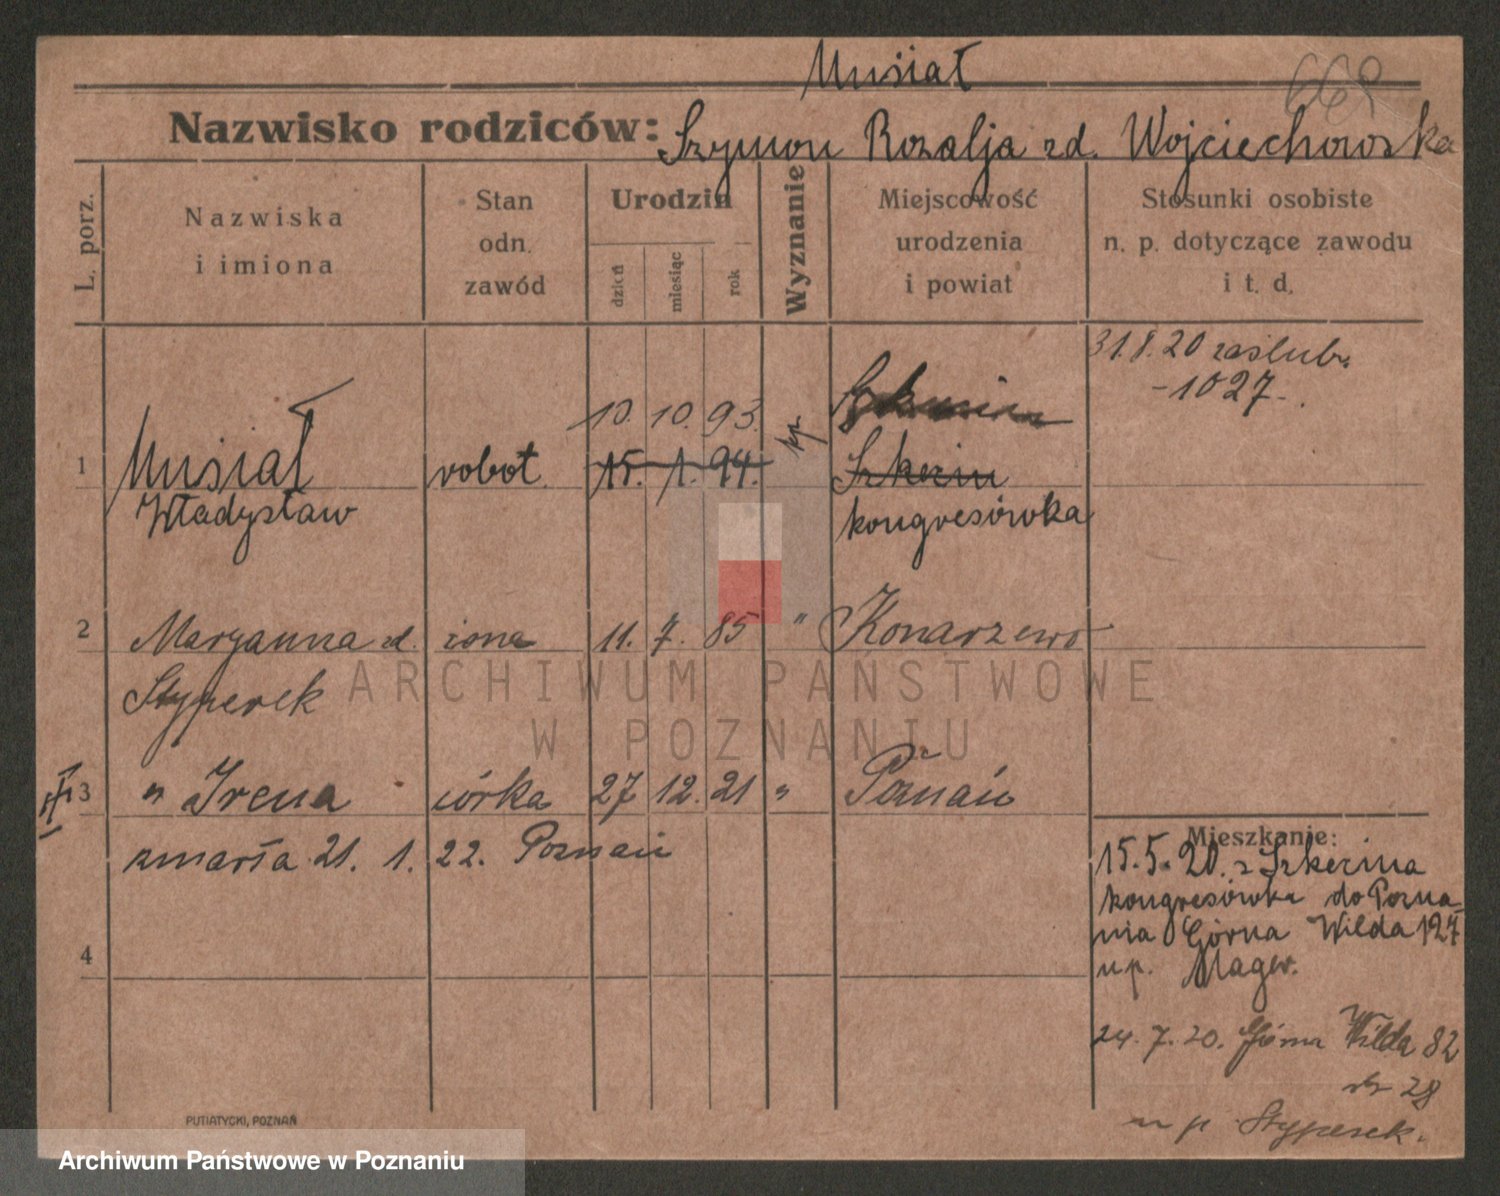 Musiał
668
Nazwisko rodziców: Szymon Rozalja zd. Wojciechowska
L. porz.
Nazwiska
i imiona
Stan
odn.
zawód
Urodzin
dzień
miesiąc
rok
Wyznanie
Miejscowość
urodzenia
i powiat
Stosunki osobiste
n. p. dotyczące zawodu
i t. d.
31.8.20 zaślub.
-1027-.
10. 10. 93.
1 Musiał robot. 15. 1. 94. kp.
Władysław kongresówka
2 Maryanna zd. żona 11. 7. 85 " Konarzewo
Styperek
3 " Irena córka 27 12. 21 " Poznań
zmarła 21. 1. 22. Poznań
4
Mieszkanie:
15.5.20. z Szkerina
kongresówka do Pozna
nia Górna Wilda 127
u p. Magw.
24. 7. 20. Górna Wilda 82
28
u p Styperek.
PUTIATYCKI, POZNAŃ
ARCHIWUM PAŃSTWOWE
W POZNANIU
Archiwum Państwowe w Poznaniu